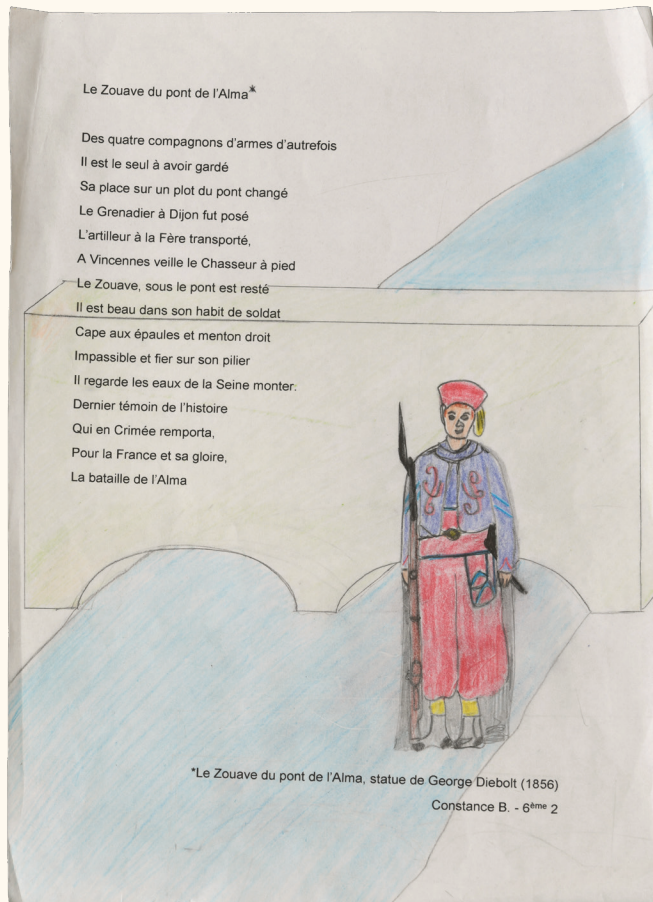 Le Zouave du pont de l'Alma*
Des quatre compagnons d'armes d'autrefois
Il est le seul à avoir gardé
Sa place sur un plot du pont changé
Le Grenadier à Dijon fut posé
L'artilleur à la Fère transporté,
A Vincennes veille le Chasseur à pied
Le Zouave, sous le pont est resté
Il est beau dans son habit de soldat
Cape aux épaules et menton droit
Impassible et fier sur son pilier
Il regarde les eaux de la Seine monter.
Dernier témoin de l'histoire
Qui en Crimée remporta,
Pour la France et sa gloire,
La bataille de l'Alma
*Le Zouave du pont de l'Alma, statue de George Diebolt (1856)
Constance B. - 6ème 2